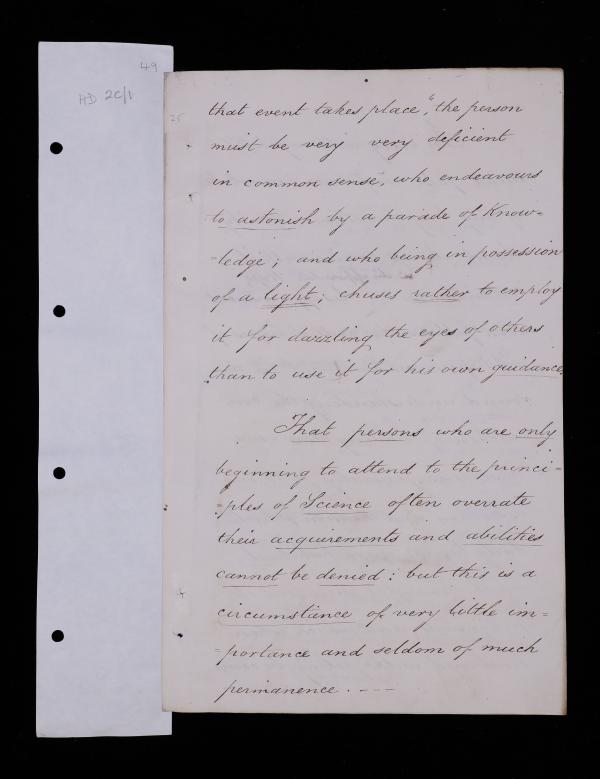 49
HD 2C/1
25
that event takes place", the person
must be very very deficient
in common sense, who endeavours
to astonish by a parade of Know=
=ledge; and who being in possession
of a light; chuses rather to employ
it for dazzling the eyes of others
than to use it for his own guidance.
That persons who are only
beginning to attend to the princi=
=ples of Science often overrate
their acquirements and abilities
cannot be denied: but this is a
circumstance of very little im=
=portance and seldom of much
permanence. ---